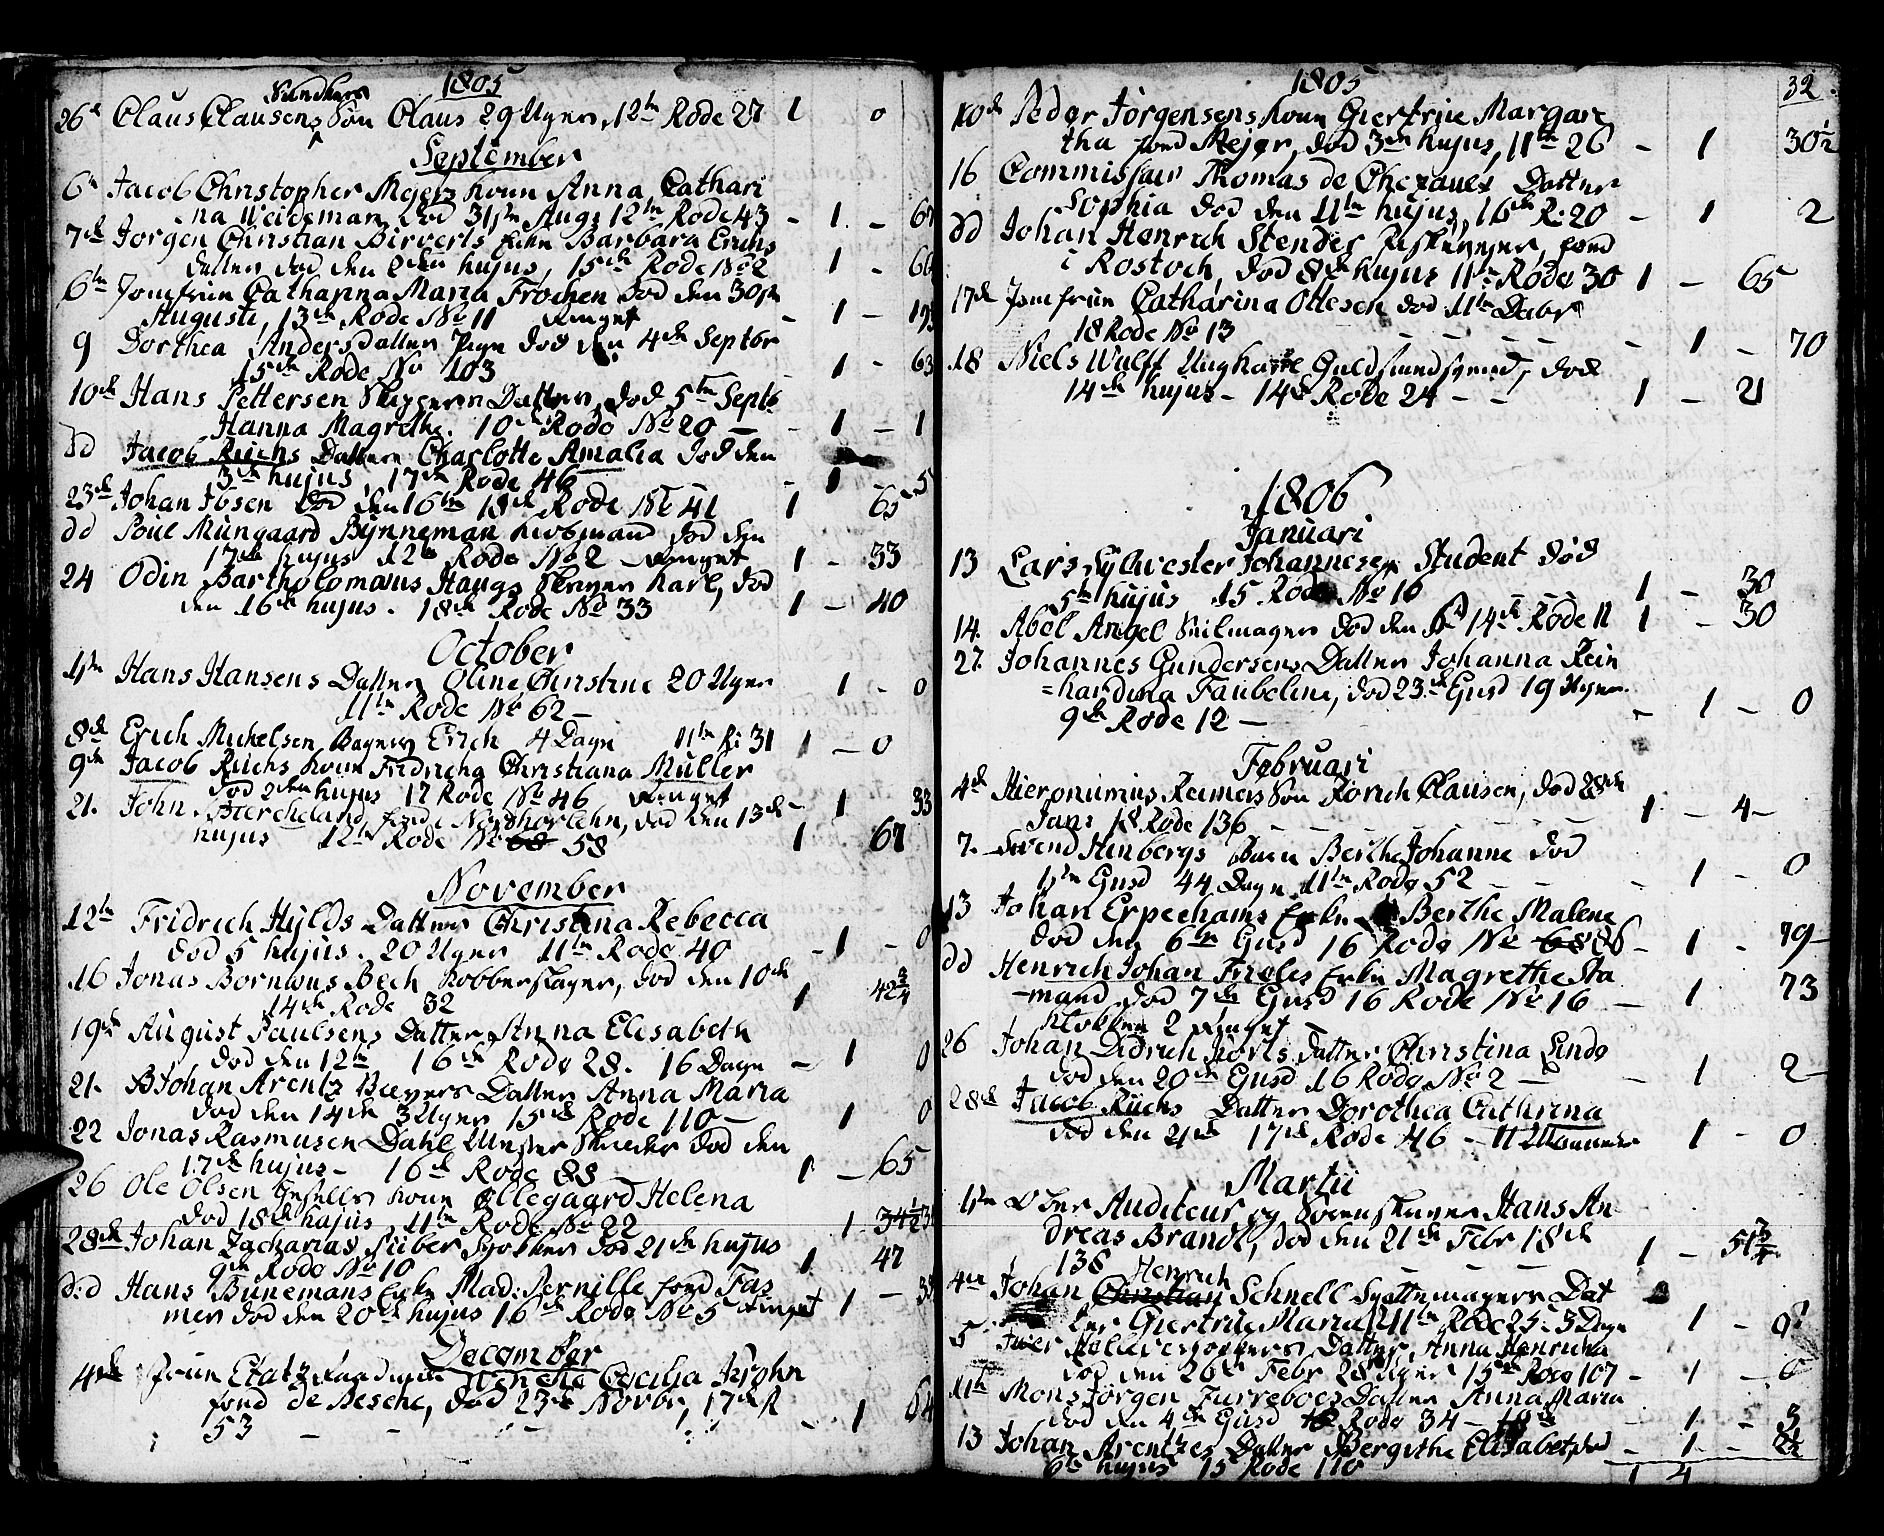 1805
Snedkers
26 Claus Clausens Søn Claus 29 Uger, 12te Rode 27 1 0
September
6te Jacob Christopher Meyers Kone Anna Cathari
na Weideman død 31te Aug: 12te Rode 43 - 1 - 67
7de Jørgen Christian Enke Barbara Erichs
datter død den 2den hujus, 15de Rode No 2 1 - 66
6te Jomfrue Catharina Maria Frochen død den 30te
Augusti, 13de Rode No 11 Ringet - 1 -
9 Dorthea Andersdatter Pige død den 4de Septbr
15de Rode No 103 1 - 63
10de Hans Pettersen Skippers Datter, død 5te Septb
Hanna Magrethe. 10de Rode No 20 - 1 - 1
dd Jacob Riichs Datter Charlotte Amalia død den
3de hujus, 17de Rode 46 - 1 - 5
23de Johan Ibsen død den 16te 18de Rode No 41 1 65
dd Poul Mungaard Bynneman Kiøbmand død den
17de hujus 12te Rode No 2 Ringet 1 - 33
24 Odin Bartholomæus Haugs Karl, død
den 16de hujus. 18de Rode No 33 1 - 40
October
Hans Hansens Datter Oline Christine 20 Uger 1 - 0
11te Rode No 62 -
8de Erich Michelsen Bagers Erich 4 Dage 11te R: 31 1 - 0
9de Jacob Riichs Kone Fridricha Christiana Müller
død 2den hujus 17 Rode No 46 Ringet - 1 33
21. John Biercheland, død den 13de
hujus 12te Rode No 58 1 67
November
12te Fridrich Hylds Datter Christina Rebecca
død 5 hujus. 20 Uger 11te Rode 40 - 1 - 0
16 Jonas Bornæus Bech Kobberslager, død den 10de
14de Rode 32 1 42 3/4
19de August Paulsens Datter Anna Elisabeth
død den 12te 16de Rode 28. 16 Dage - 1 0
21. Johan Arentz Bagers Datter Anna Maria
død den 14de 3 Uger 15de Rode 110 - 1 0
22 Jonas Rasmusen Dahl død den
17de hujus - 16de Rode 88 1 - 65
26 Ole Olsen Kone Ellegaard Helena
død 18de hujus 11te Rode No 22 1 - 34 1/2
28de Johan Zacharias død 21de hujus
9de Rode No 10 1 47
d:d Hans Bünemans Enke Mad: Pernille fød Fas
mer død den 20de hujus 16de Rode No 5 Ringet 1 -
December
4de Frue Etatz Raadinde Wencke Cecilia
fød de Besche, død 23de Novbr, 17de R
53 - - - - 1 64
1805 32
10de Peder Jørgensens Kone Giertrue Margare
tha fød Mejer, død 3de hujus, 11te 26 - 1 30 1/2
16 Commissair Thomas de Datter
Sophia død den 11te hujus, 16de R: 20 - 1 2
dd Johan Henrich Stender, fød
i Rostoch, død 8de hujus 11te Rode 30 1 - 65
17de Jomfrue Catharina Ottesen død 11te Decbr
18 Rode No 13 - - - - 1 - 70
18 Niels Wulff Guldsmedsvend, død
14de hujus - 14de Rode 24 - - 1 - 21
1806
Januari
13 Lars Sylvester Johannesen Student død
5te hujus 15 Rode No 16 1 - 30
14. Abel Angel Seilmager død den 14de Rode 11 1 - 30
27. Johannes Gundersens Datter Johanna Rein
=hardina Faubeline, død 23de Ejusd 19 Uger
9de Rode 12 - - 1 - 0
Februari
4de Hieronimus Reimers Søn Rorich Clausen, død 28de
Jan: 18 Rode 136 - - - 1 - 4 -
7. Berthe Johanne død
Ejusd 44 Dage 11te Rode 52 - - 1 - 0
13 Johan Erpechams Enke Berthe Malene
død den 6te Ejusd 16 Rode No 86 - 1 - 79 -
dd Henrich Johan Frieles Enke Magrethe Sta
mand død 7de Ejusd 16 Rode No 16 - 1 73
Klokken 2 Ringet
26 Johan Didrich Datter Christina Linde
død den 20de Ejusd 16 Rode No 2 - 1 2 -
28de Jacob Riichs Datter Dorothea Cathrina
død den 21de 17de Rode 46 - 11 Maaneder 1 - 0
Martii
Ober Auditeur og Sorenskriver Hans An
dreas Brandt, død den 21de Febr 18de
138 - - - 1 - 51 3/4
Henrich
4de Johan Christian Schnell Dat
ter Giertrue Maria 11te Rode 25. 3 Dage 1 - 0
5. Datter, Anna Henricha
død den 26de Febr 28 Uger 15de Rode 107 - 1 - 0
11te Mons Jørgen Datter Anna Maria
død den 4de Ejusd Rode 34 - 18de 1 - 3
13 Johan Arentzes Datter Bergithe Elisabet død - 1 - 2 1/2
6te hujus 15 Rode 110
1 4